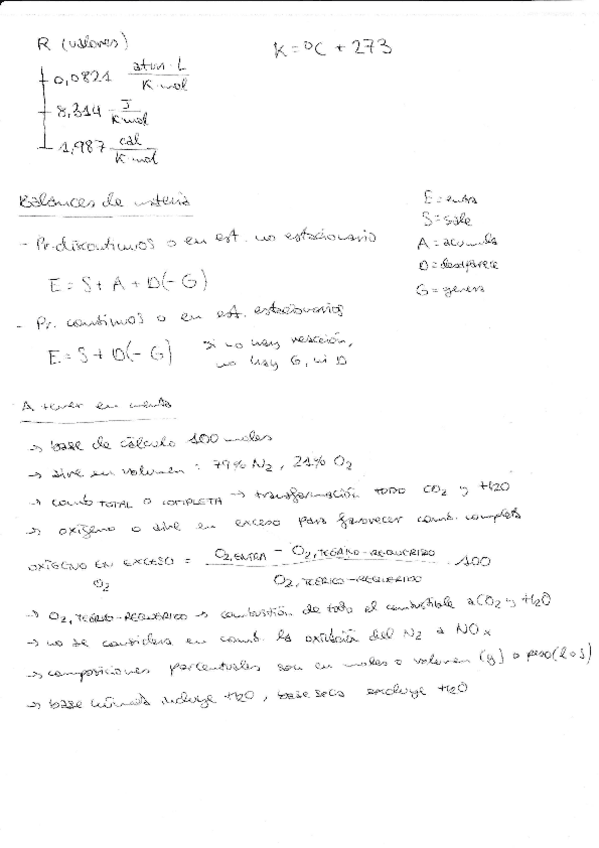 R (valores)
K = ºC + 273
0,0821 atm·L / K·mol
8,314 J / K·mol
1,987 cal / K·mol
Balances de materia
- Pr. discontinuos o en est. no estacionario
E = S + A + D (- G)
- Pr. continuos o en est. estacionarios
E = S + D (- G) si no hay reacción,
no hay G, ni D
E = entra
S = sale
A = acumula
D = desaparece
G = genera
A tener en cuenta
→ base de cálculo 100 moles
→ aire en volumen : 79% N₂, 21% O₂
→ comb TOTAL O COMPLETA → transformación TODO CO₂ y H₂O
→ oxígeno o aire en exceso para favorecer comb. completa
OXÍGENO EN EXCESO = O₂,ENTRA - O₂,TEÓRICO-REQUERIDO / O₂,TEÓRICO-REQUERIDO · 100
O₂
→ O₂,TEÓRICO-REQUERIDO → combustión de todo el combustible a CO₂ y H₂O
→ no se considera en comb. la oxidación del N₂ a NOx
→ composiciones porcentuales son en moles o volumen (y) o peso
→ base húmeda incluye H₂O, base seca excluye H₂O